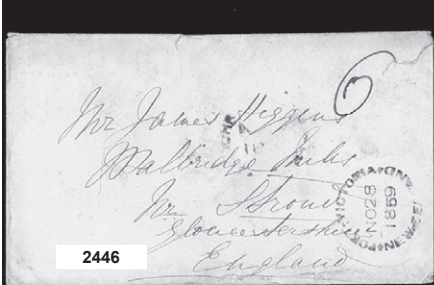 6
Mr James Higgins
Walbridge Mills
Nr Stroud
Gloucestershire
England
VICTORIA
NO 28
1859
2446